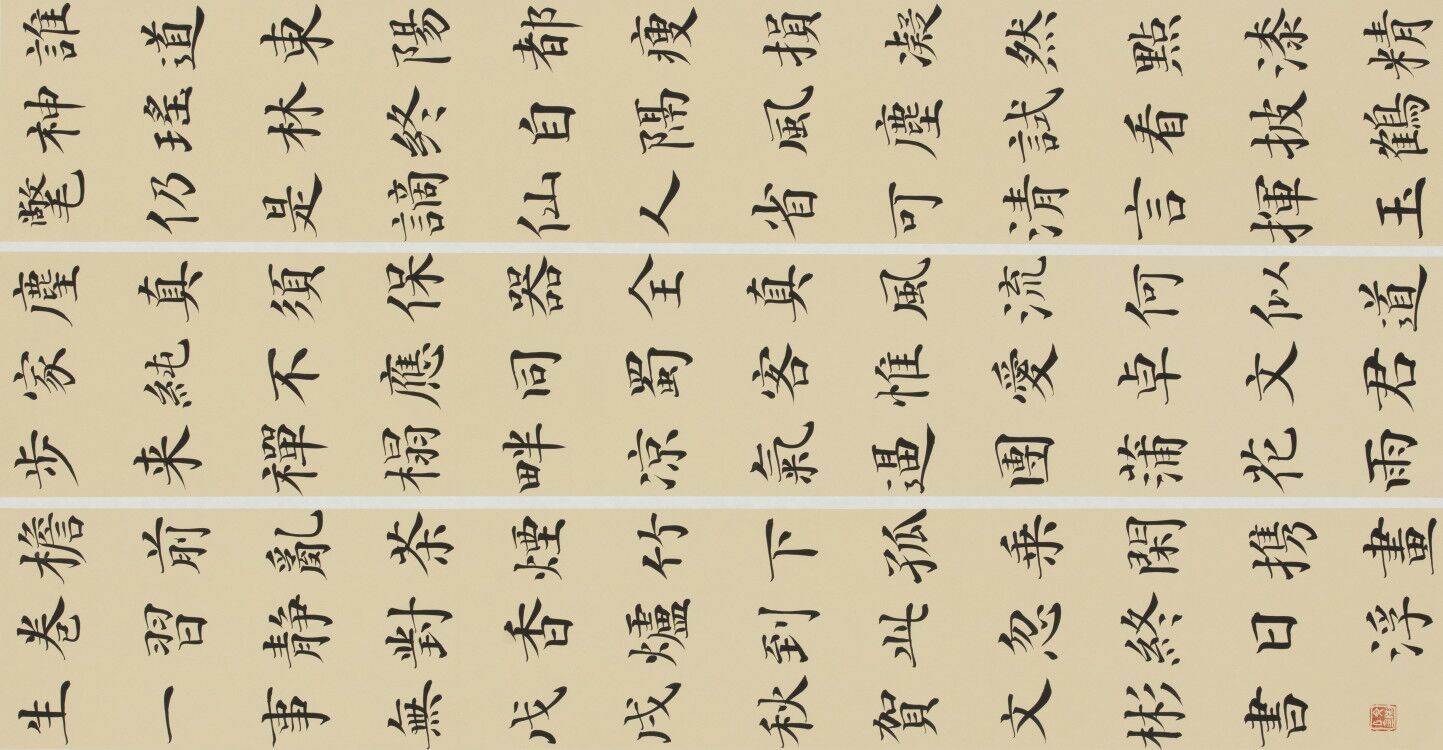 誰道東陽都瘦損凝然點漆精
神瑤林終自隔風塵試看披鶴
氅仍是謫仙人省可清言揮玉
麈真須保器全真風流何似道
家純不應同蜀客惟愛卓文君
步来禪榻畔凉氣逼團蒲花雨
檐前亂茶煙竹下孤乗閑携畫
卷習靜對香爐到此忽終日浮
生一事無戊戌秋賀文彬書